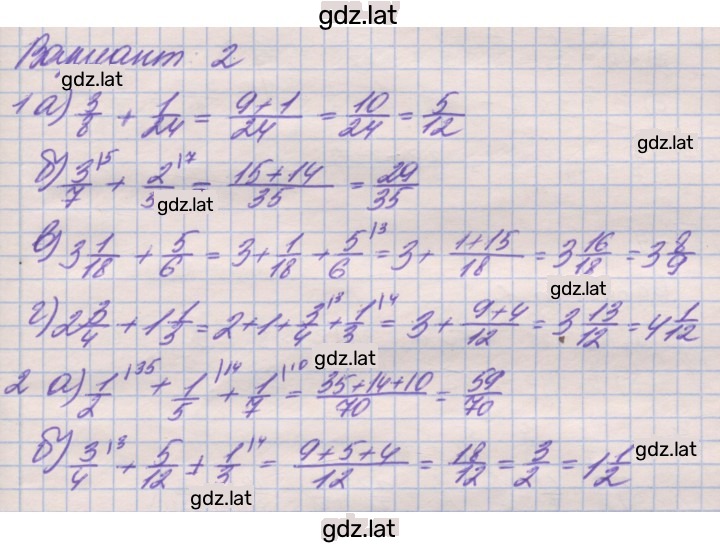 gdz.lat
Вариант 2
gdz.lat
1 а) 3/8 + 1/24 = (9+1)/24 = 10/24 = 5/12
gdz.lat
б) 3/7 |5 + 2/5 |7 = (15+14)/35 = 29/35
gdz.lat
в) 3 1/18 + 5/6 = 3 + 1/18 + 5/6 |3 = 3 + (1+15)/18 = 3 16/18 = 3 8/9
gdz.lat
г) 2 3/4 + 1 1/3 = 2+1+ 3/4 |3 + 1/3 |4 = 3 + (9+4)/12 = 3 13/12 = 4 1/12
gdz.lat
2 а) 1/2 |35 + 1/5 |14 + 1/7 |10 = (35+14+10)/70 = 59/70
б) 3/4 |3 + 5/12 + 1/3 |4 = (9+5+4)/12 = 18/12 = 3/2 = 1 1/2
gdz.lat
gdz.lat
gdz.lat